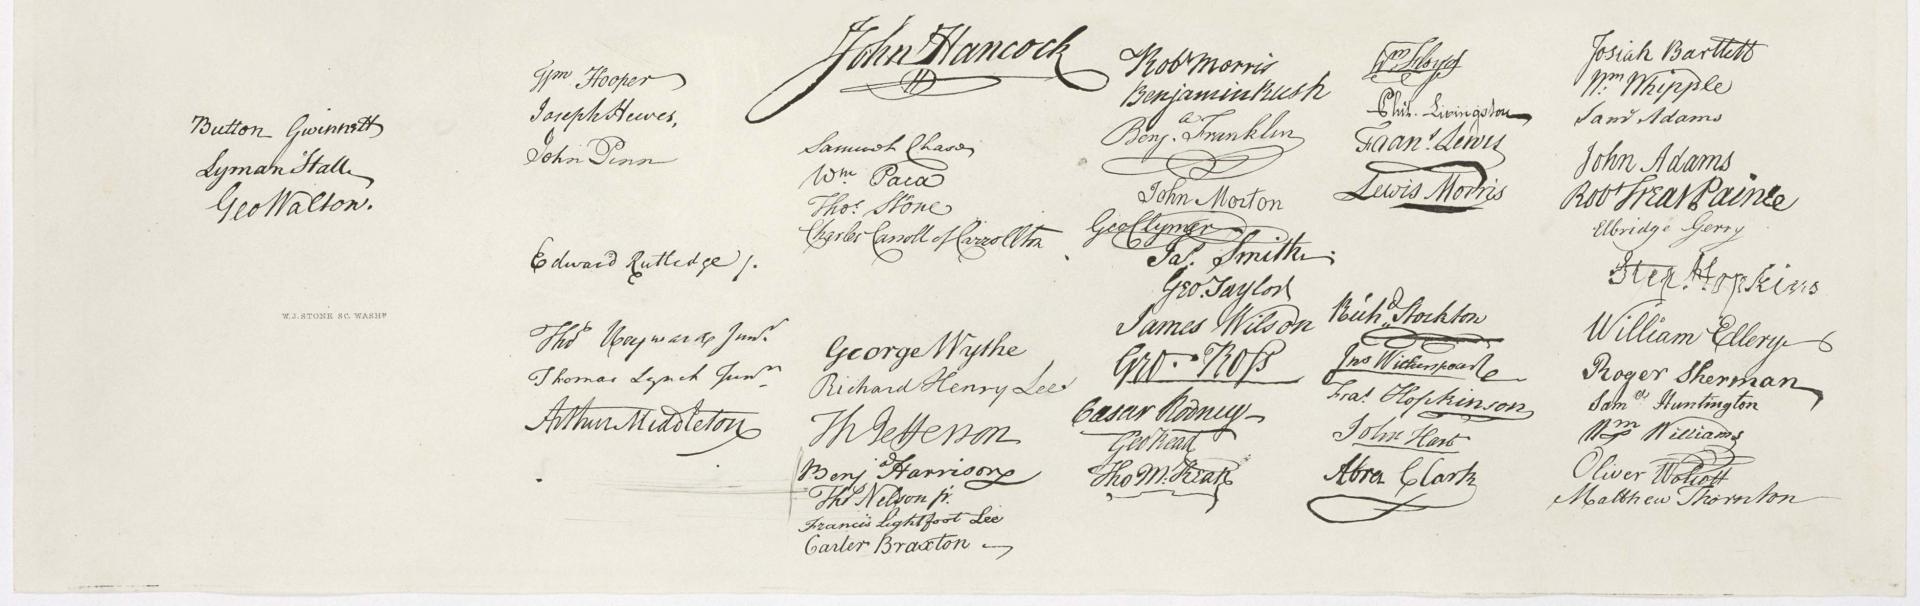 Button Gwinnett
Lyman Hall
Geo Walton.
W. J. STONE SC. WASHN
Wm Hooper
Joseph Hewes,
John Penn
Edward Rutledge /.
Thos Heyward Junr.
Thomas Lynch Junr.
Arthur Middleton
John Hancock
Samuel Chase
Wm. Paca
Thos. Stone
Charles Carroll of Carrollton
George Wythe
Richard Henry Lee
Th Jefferson
Benja Harrison
Thos Nelson jr.
Francis Lightfoot Lee
Carter Braxton
Robt Morris
Benjamin Rush
Benja. Franklin
John Morton
Geo Clymer
Jas. Smith
Geo. Taylor
James Wilson
Geo. Ross
Caesar Rodney
Geo Read
Tho M:Kean
Wm Floyd
Phil. Livingston
Frans. Lewis
Lewis Morris
Richd. Stockton
Jno Witherspoon
Fras. Hopkinson
John Hart
Abra Clark
Josiah Bartlett
Wm. Whipple
Saml Adams
John Adams
Robt Treat Paine
Elbridge Gerry
Step. Hopkins
William Ellery
Roger Sherman
Saml Huntington
Wm Williams
Oliver Wolcott
Matthew Thornton